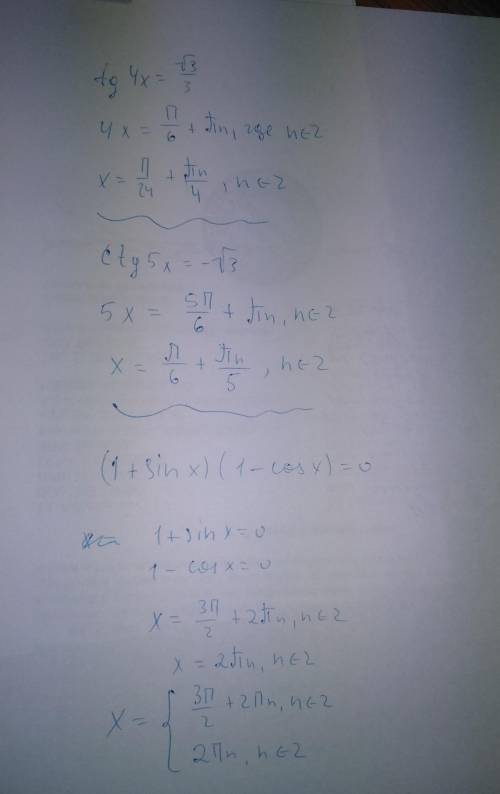 tg 4x = √3/3
4x = П/6 + πn, где n∈Z
x = П/24 + πn/4, n∈Z
ctg 5x = -√3
5x = 5П/6 + πn, n∈Z
x = π/6 + πn/5, n∈Z
(1 + sin x)(1 - cos x) = 0
1 + sin x = 0
1 - cos x = 0
x = 3П/2 + 2πn, n∈Z
x = 2πn, n∈Z
x = { 3П/2 + 2Пn, n∈Z
2Пn, n∈Z